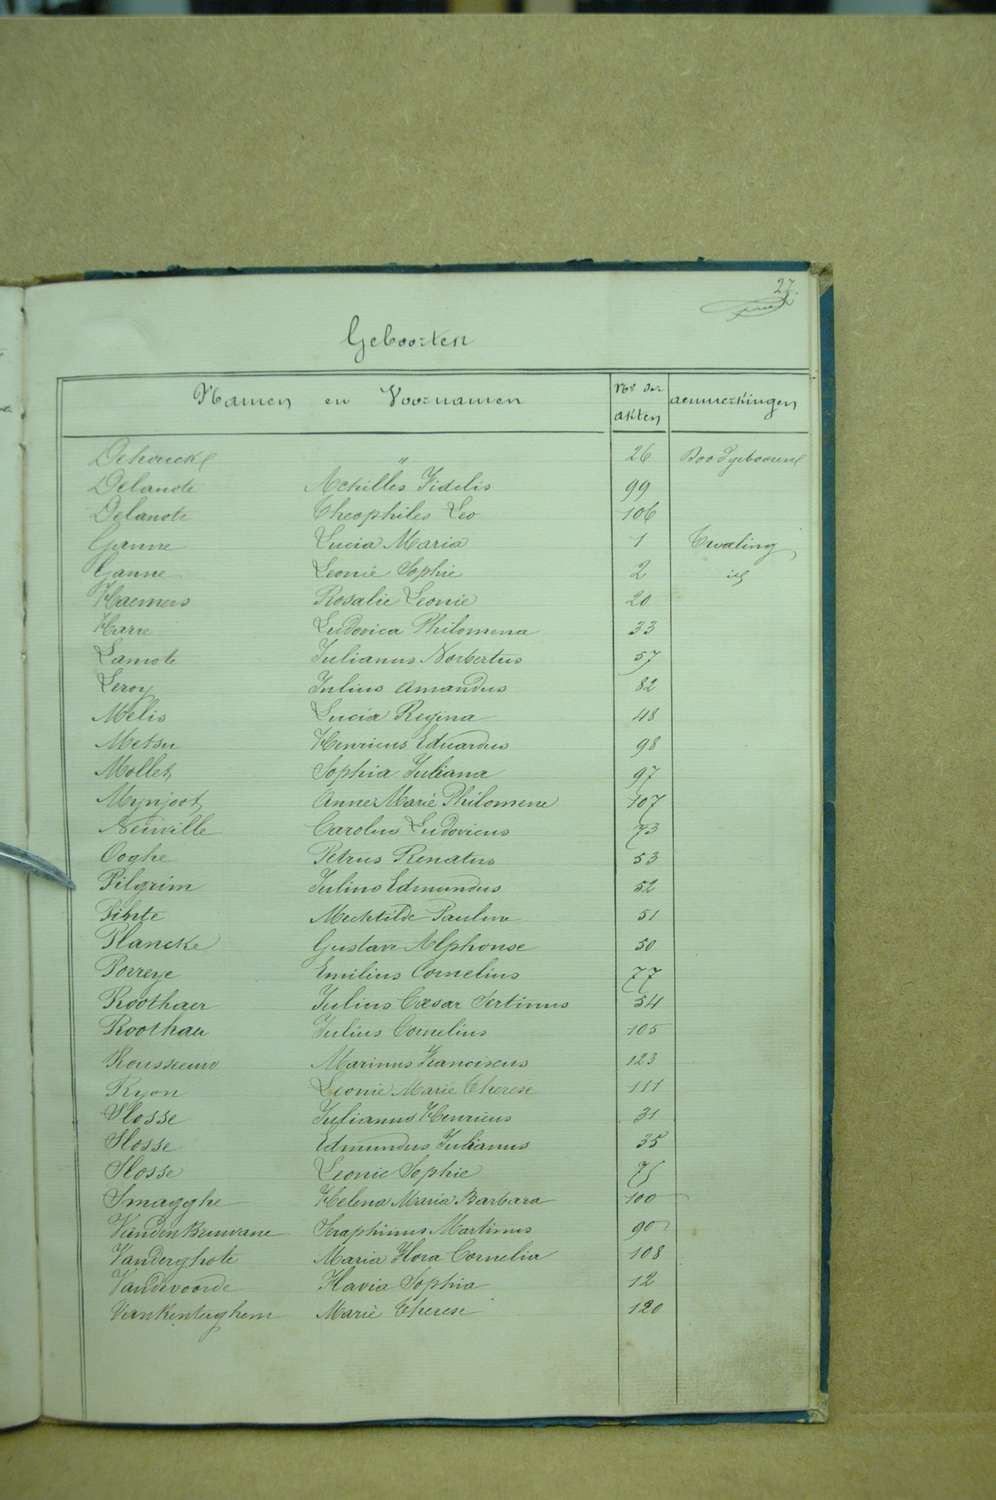 27.
Geboorten
Namen en Voornamen Nrs der akten aenmerkingen
Dehouck " 26 Doodgeboren
Delanote Achilles Fidelis 99
Delanote Theophiles Leo 106
Ganne Lucia Maria 1 Tweeling
Ganne Leonie Sophie 2 id
Haemers Rosalie Leonie 20
Harre Ludovica Philomena 33
Lamote Julianus Norbertus 57
Leroy Julius Amandus 82
Melis Lucia Regina 48
Metsu Henricus Eduardus 98
Mollet Sophia Juliana 97
Mynjoot Anne Marie Philomene 107
Neirville Carolus Ludovicus 73
Ooghe Petrus Renatus 53
Pilgrim Julius Edmundus 52
Pinte Mechtilde Pauline 51
Plancke Gustave Alphonse 50
Porreye Emilius Cornelius 77
Roothaer Julius Cæsar Sertinus 54
Roothaer Julius Cornelius 105
Rousseeuw Marinus Franciscus 123
Ryon Leonie Marie Therese 111
Slosse Julianus Henricus 31
Slosse Edmundus Julianus 35
Slosse Leonie Sophie 75
Smagghe Helena Maria Barbara 100
Vanden Seraphinus Martinus 90
Vanderghote Maria Flora Cornelia 108
Vandevoorde Flavia Sophia 12
VanKenterghem Marie Therese 120